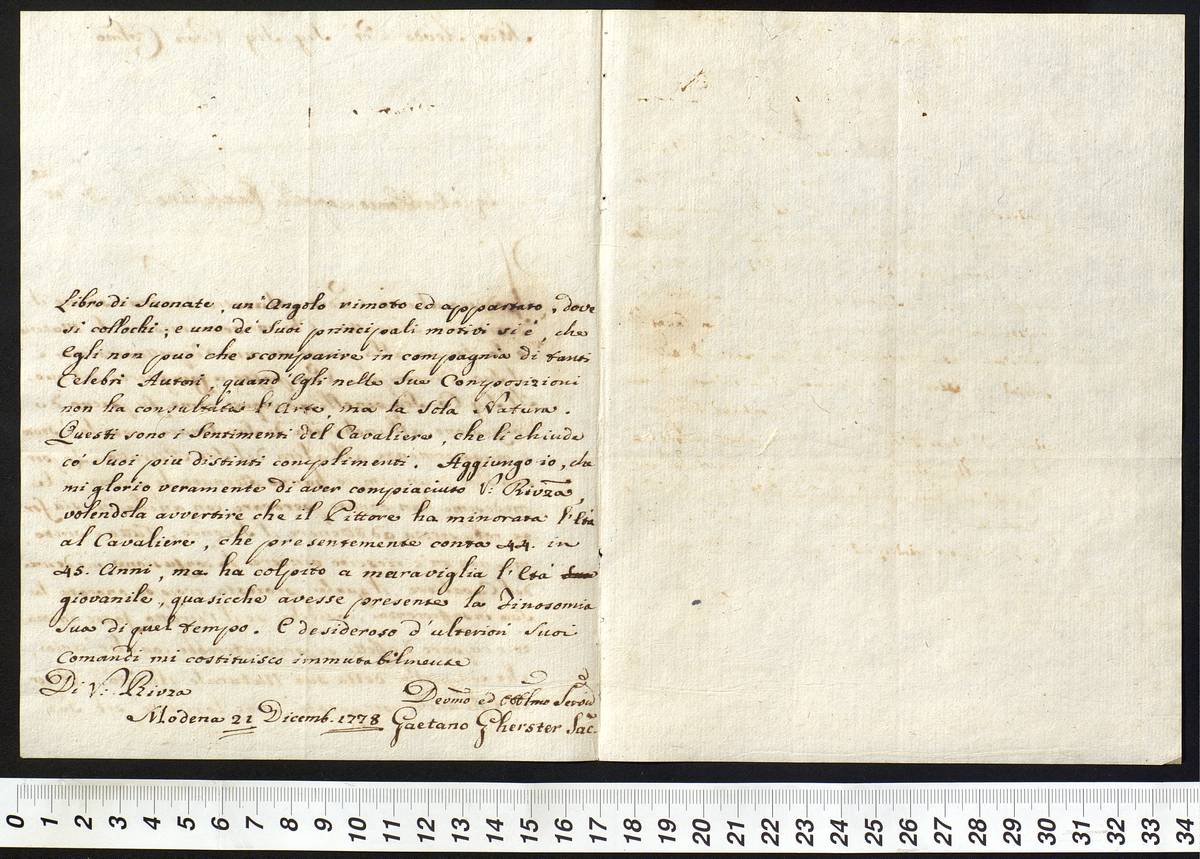 Libro di Suonate, un'Angolo rimoto ed appartato, dove
si collochi; e uno de' Suoi principali motivi si è, che
Egli non può che scomparire in compagnia di tanti
Celebri Autori, quand'Egli nelle Sue Composizioni
non ha consultata l'Arte, ma la Sola Natura.
Questi sono i Sentimenti del Cavaliere, che li chiude
co' Suoi più distinti complimenti. Aggiungo io, che
mi glorio veramente di aver compiaciuto V: Rivza,
volendola avvertire che il Pittore ha minorata l'Età
al Cavaliere, che presentemente conta 44. in
45. Anni, ma ha colpito a maraviglia l'Età
giovanile, quasicche avesse presente la Finosomia
Sua di quel tempo. E desideroso d'ulteriori Suoi
Comandi mi costituisco immutabilmente
Di V: Rivza
Devmo ed Obblmo Servid.e
Modena 21 Dicemb. 1778 Gaetano Gherster Sac.
0 1 2 3 4 5 6 7 8 9 10 11 12 13 14 15 16 17 18 19 20 21 22 23 24 25 26 27 28 29 30 31 32 33 34